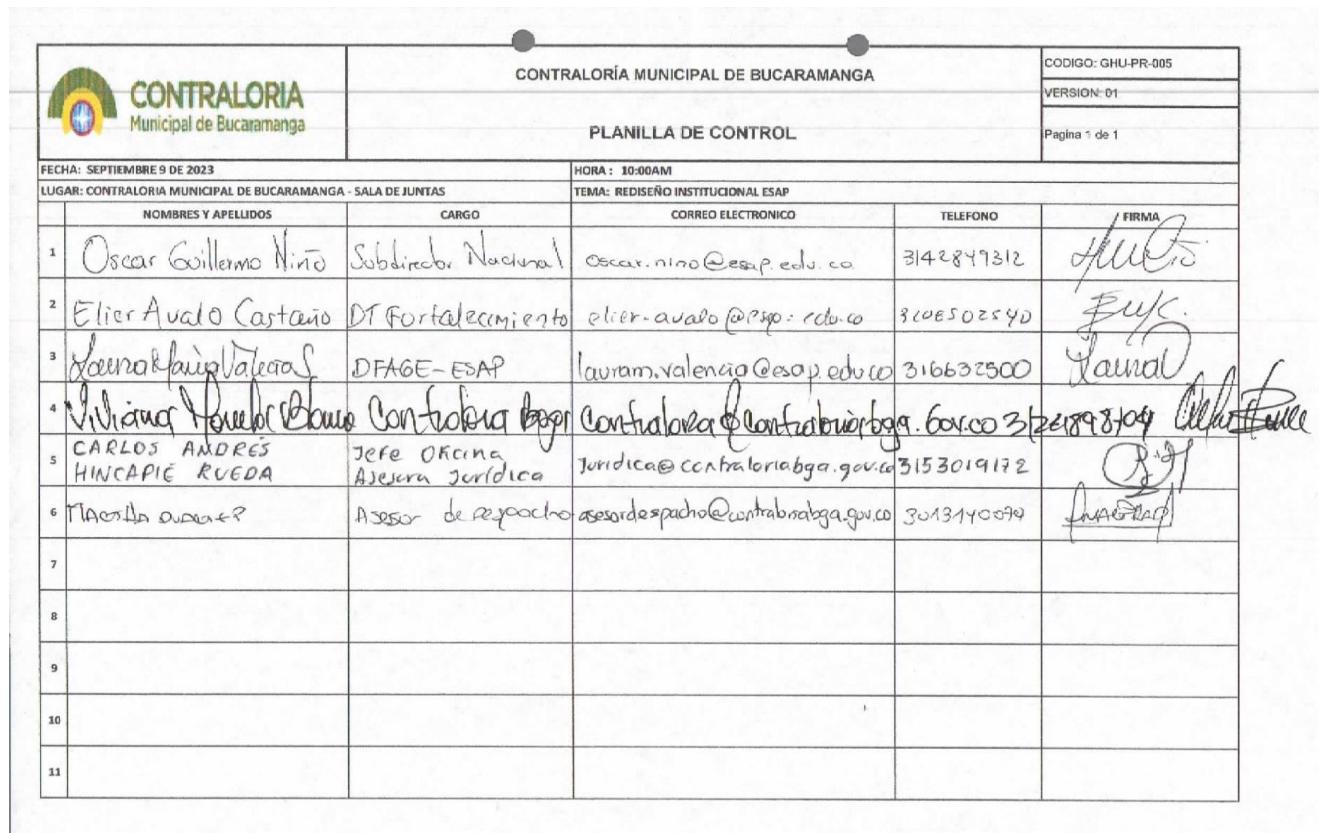 CONTRALORIA
Municipal de Bucaramanga
CONTRALORÍA MUNICIPAL DE BUCARAMANGA
PLANILLA DE CONTROL
CODIGO: GHU-PR-005
VERSION: 01
Pagina 1 de 1
FECHA: SEPTIEMBRE 9 DE 2023 HORA : 10:00AM
LUGAR: CONTRALORIA MUNICIPAL DE BUCARAMANGA - SALA DE JUNTAS TEMA: REDISEÑO INSTITUCIONAL ESAP
NOMBRES Y APELLIDOS CARGO CORREO ELECTRONICO TELEFONO FIRMA
1 Oscar Guillermo Niño Subdirector Nacional oscar.nino@esap.edu.co 3142849312
2 Elier Avalo Castaño DT Fortalecimiento
3 Laura María Valencia DFAGE-ESAP lauram.valencia@esap.edu.co 316632500 Laura
4 Viviana Blanco Contralora
5 CARLOS ANDRÉS HINCAPIE RUEDA Jefe Oficina Asesora Jurídica Juridica@contraloriabga.gov.co 3153019172
6 Asesor de despacho asesordespacho@contraloriabga.gov.co
7
8
9
10
11